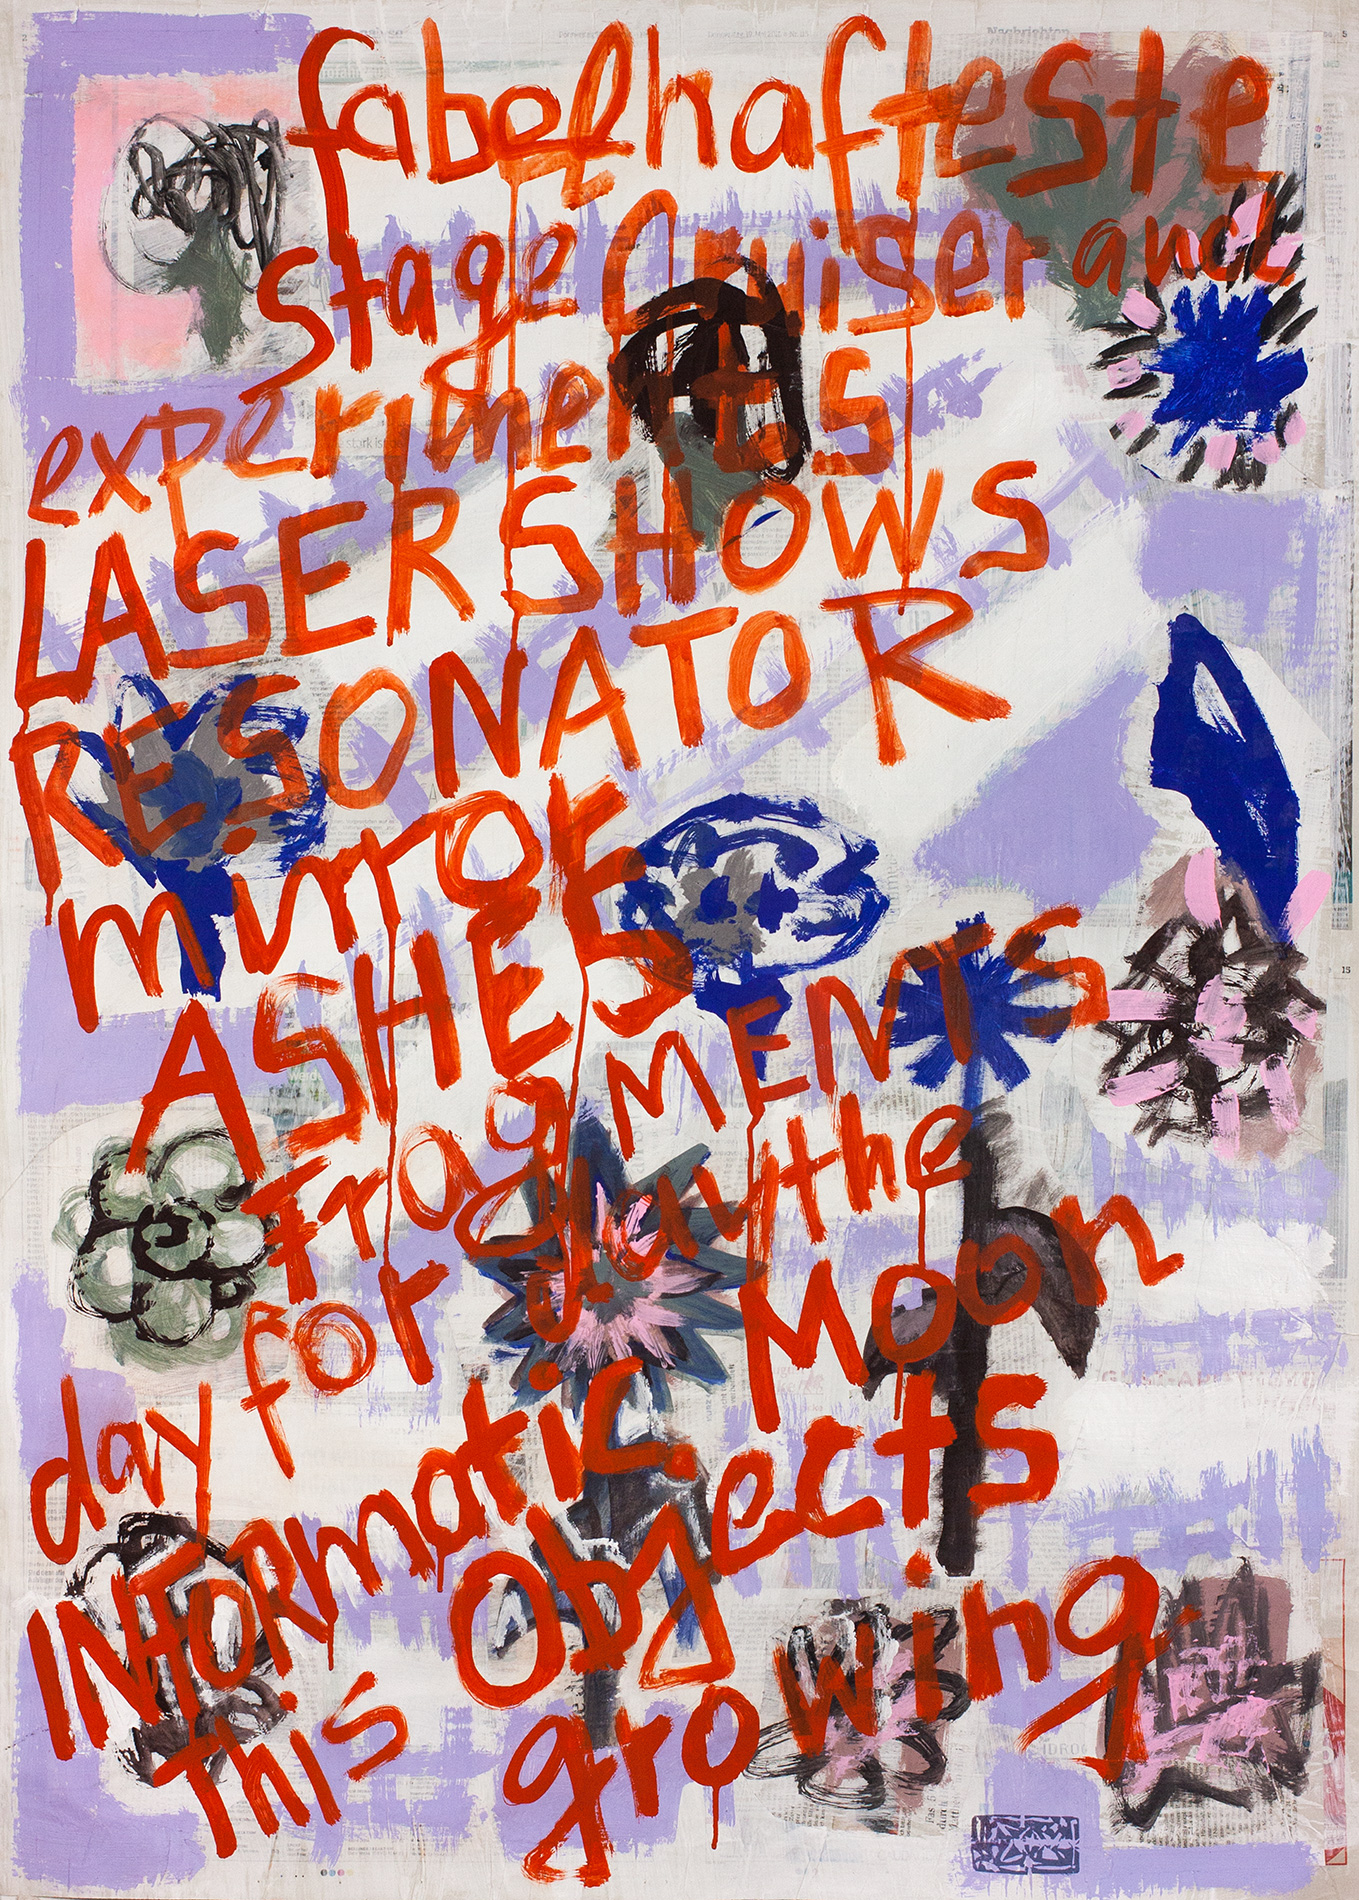 fabelhafteste
stage Cruiser and
experiments
LASER SHOWS
RESONATOR
mirror
ASHES
Frag MENTS
for dun the
day Moon
INFORmatic.
this Objects
growing.